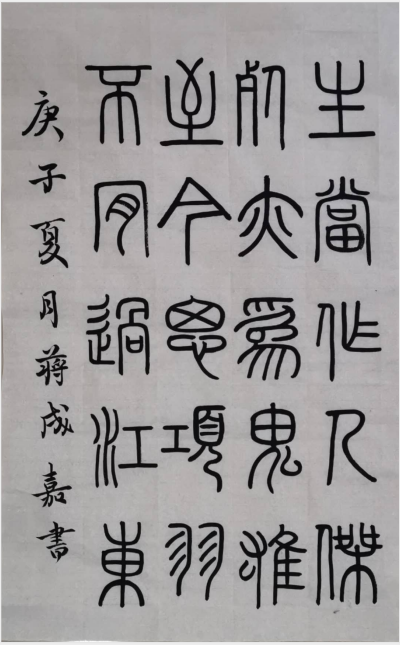 生當作人傑
死亦爲鬼雄
至今思項羽
不肯過江東
庚子夏月蔣成嘉書